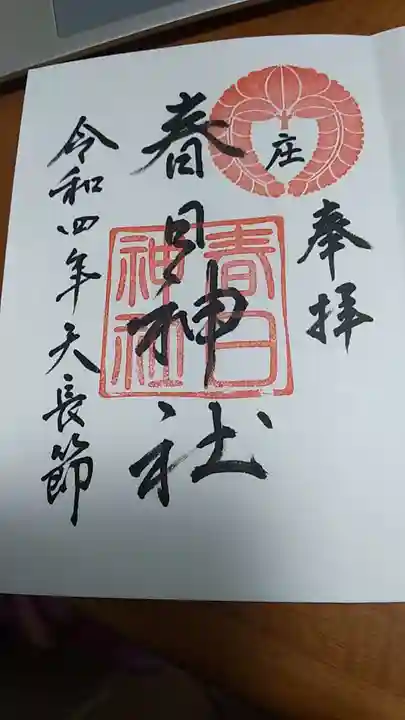 庄
奉拝
春日神社
春日神社
令和四年天長節